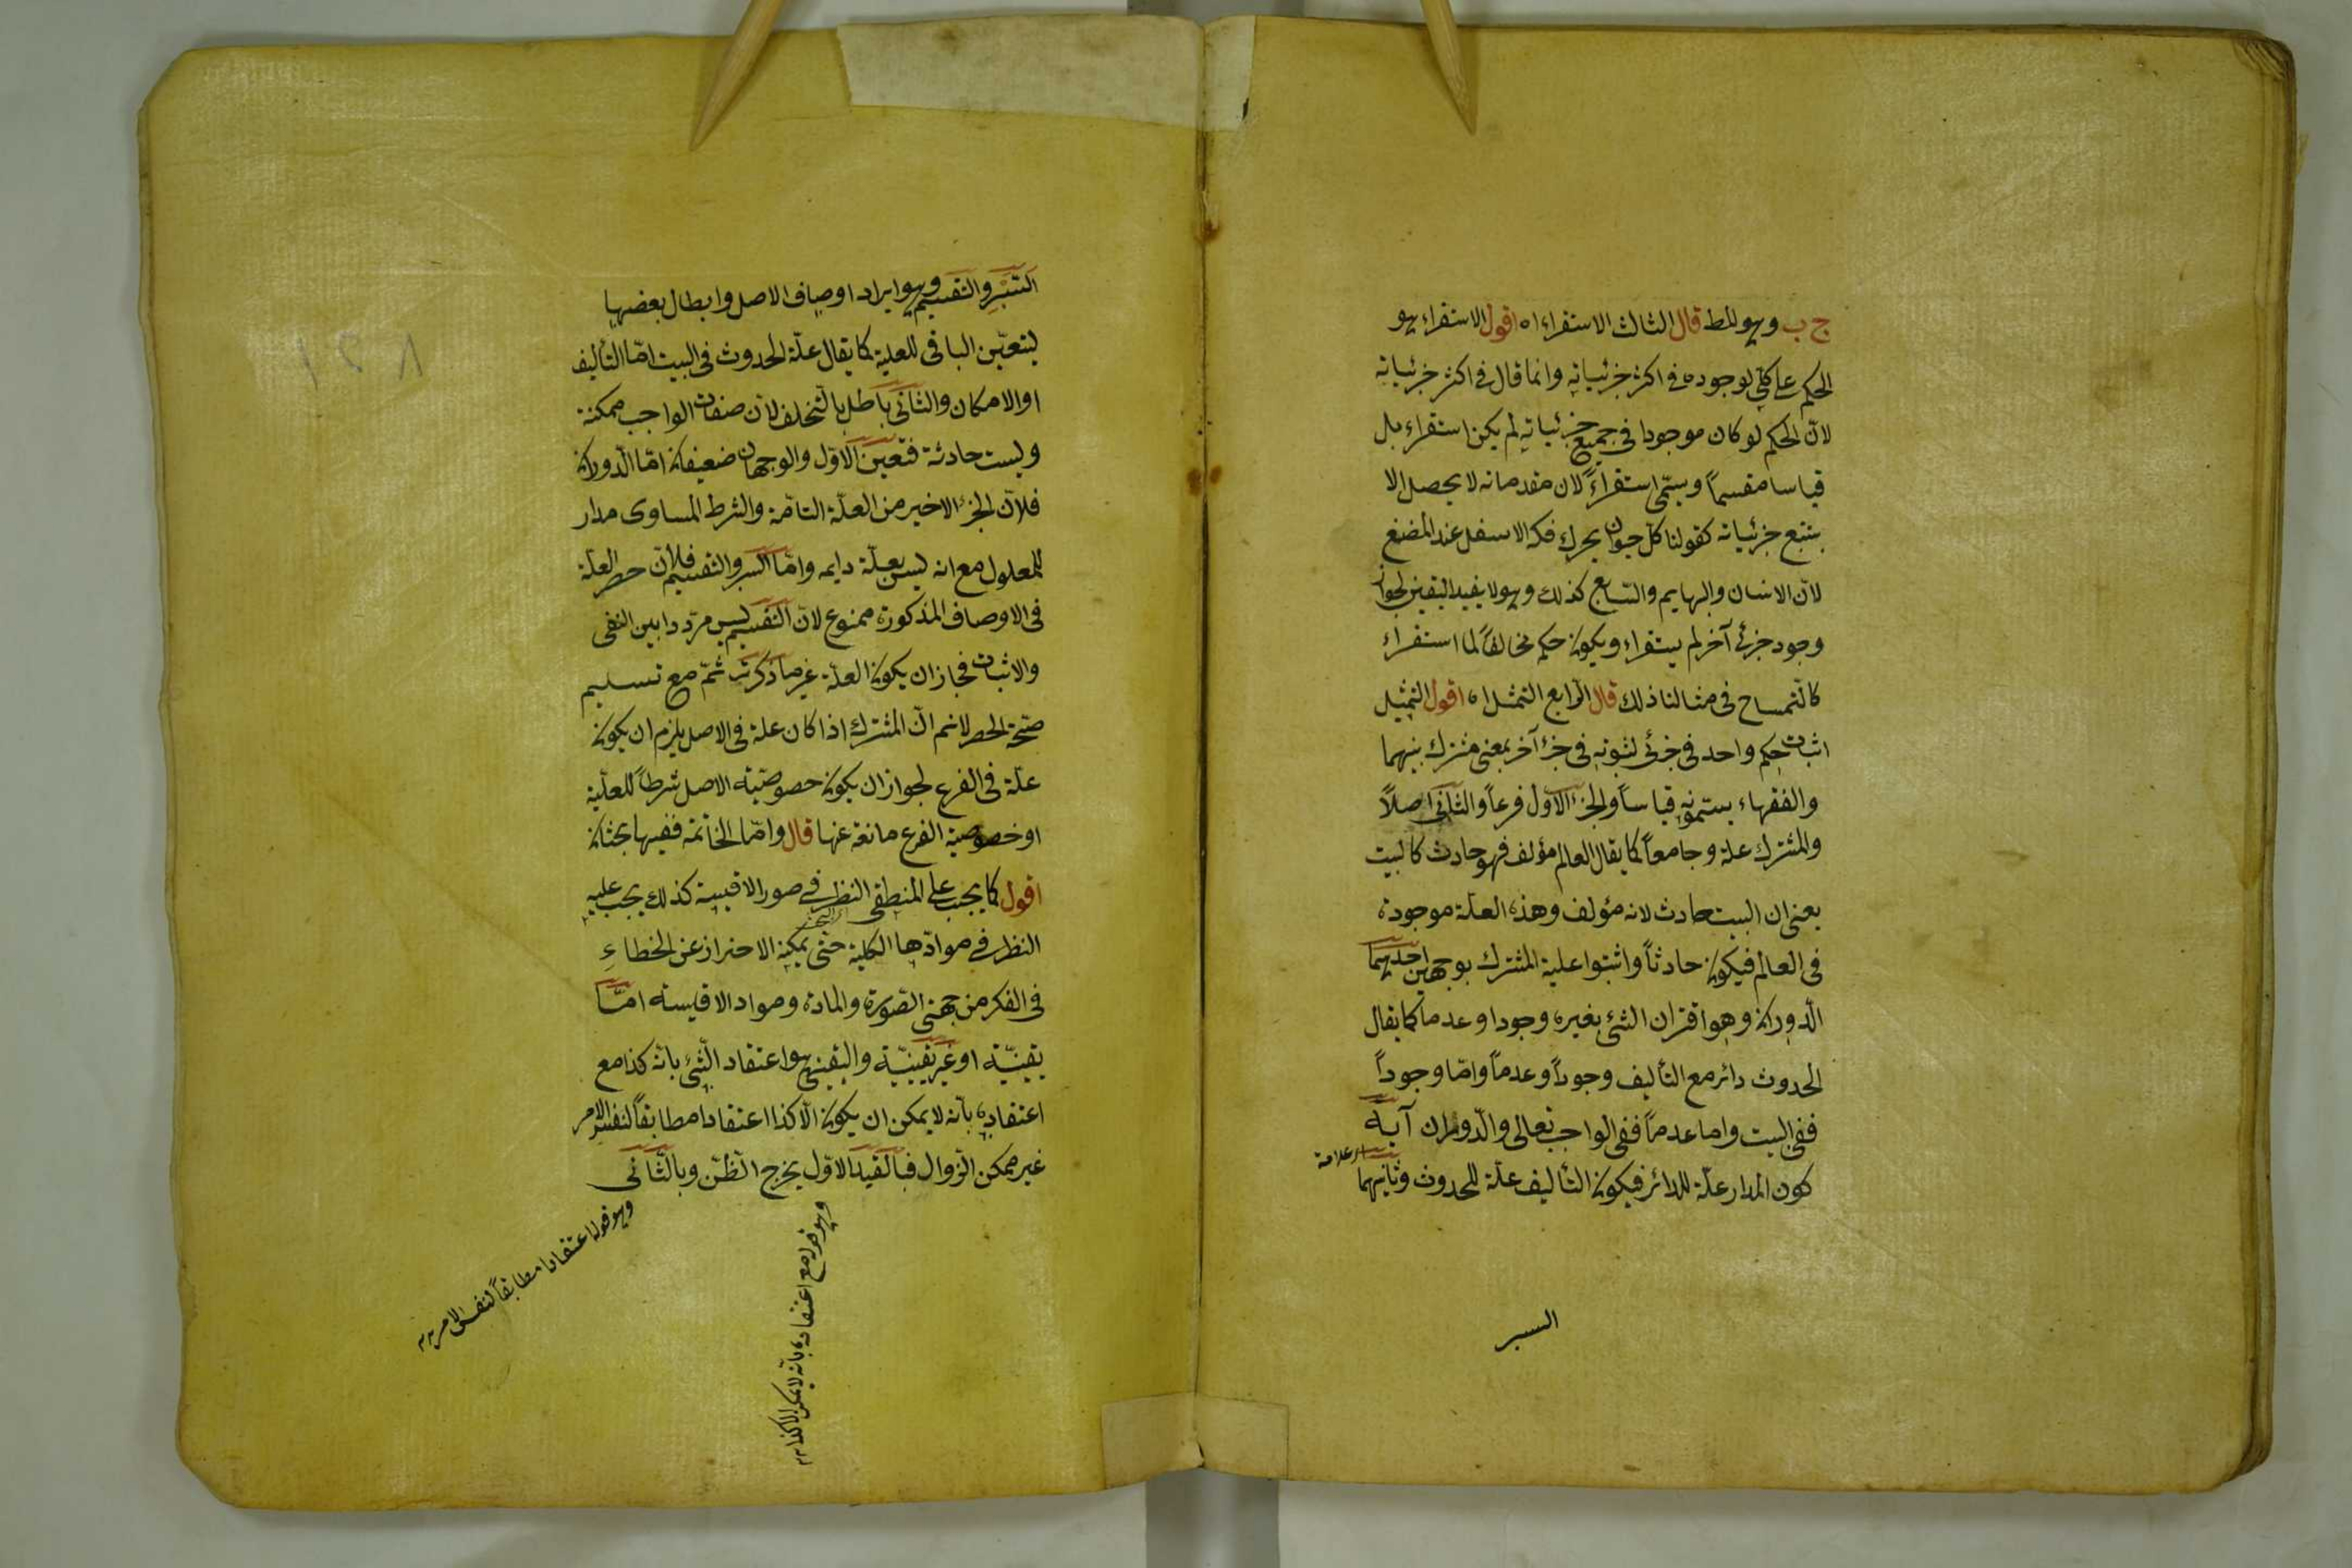 ج ب وهو المط قال الثالث الاستقراء اه اقول الاستقراء هو
الحكم على كلّي لوجوده في اكثر جزئياته وانما قال في اكثر جزئياته
لانّ الحكم لو كان موجودا في جميع جزئياته لم يكن استقراء بل
قياسا مقسماً ويسمّى استقراءً لان مقدماته لا يحصل الا
بتتبع جزئياته كقولنا كلّ حيوان يحرك فكه الاسفل عند المضغ
لانّ الانسان والبهايم والسّباع كذلك وهو لا يفيد اليقين لجواز
وجود جزئى آخر لم يستقراء ويكون حكمه مخالفاً لما استقراء
كالتّمساح فى مثالنا ذلك قال الرّابع التمثيل اه اقول التمثيل
اثبات حكم واحد فى جزئى لثبوته فى جزء آخر بمعنى مشترك بينهما
والفقهاء يسمّونه قياساً والجزء الاوّل فرعاً والثّانى اصلاً
والمشترك علة وجامعاً كما يقال العالم مؤلف فهو حادث كالبيت
يعنى ان البيت حادث لانه مؤلف وهذه العلّة موجودة
فى العالم فيكون حادثاً واثبتوا علية المشترك بوجهين احديهما
الدّوران وهو اقتران الشئ بغيره وجودا وعدما كما يقال
الحدوث دائر مع التأليف وجوداً وعدماً وامّا وجوداً
ففى البيت واما عدماً ففى الواجب تعالى والدّوران آية
اى علامة
كون المدار علّة للدائر فيكون التأليف علّة للحدوث وثانيهما
السبر
السّبر والتقسيم وهو ايراد اوصاف الاصل وابطال بعضها
ليتعيّن الباقى للعلية كما يقال علّة الحدوث فى البيت امّا التأليف
او الامكان والثّانى باطل بالتّخلف لانّ صفات الواجب ممكنة
وليست حادثة فتعيّن الاوّل والوجهان ضعيفان امّا الدّوران
فلانّ الجزء الاخير من العلّة التامّة والشرط المساوى مدار
للمعلول مع انه ليس بعلّة دايمه وامّا السبر والتقسيم فلانّ حصر العلّة
فى الاوصاف المذكورة ممنوع لانّ التقسيم ليس مردّدا بين النفى
والاثبات فجاز ان يكون العلّة غير ما ذكرت ثمّ مع تسليم
صحّة الحصر لا نم انّ المشترك اذا كان علة فى الاصل يلزم ان يكون
علّة فى الفرع لجواز ان يكون خصوصيّة الاصل شرطاً للعلّية
او خصوصية الفرع مانعة عنها قال وامّا الخاتمة ففيها بحثان
اقول كما يجب على المنطقى النظر فى صور الاقيسة كذلك يجب عليه
النظر فى موادّها الكلية حتى يمكنه الاحتراز عن الخطاء
فى الفكر من جهتى الصّورة والمادة ومواد الاقيسة امّا
يقينيّة او غير يقينيّة واليقين هو اعتقاد الشّئ بانّه كذا مع
اعتقاده بانّه لا يمكن ان يكون الّا كذا اعتقادا مطابقاً لنفس الامر
غير ممكن الزّوال فبالقيد الاوّل يخرج الظّنّ وبالثّانى
وهو قوله مع اعتقاده بانّه لا يمكن الا كذا
وهو قوله اعتقادا مطابقاً لنفس الامر